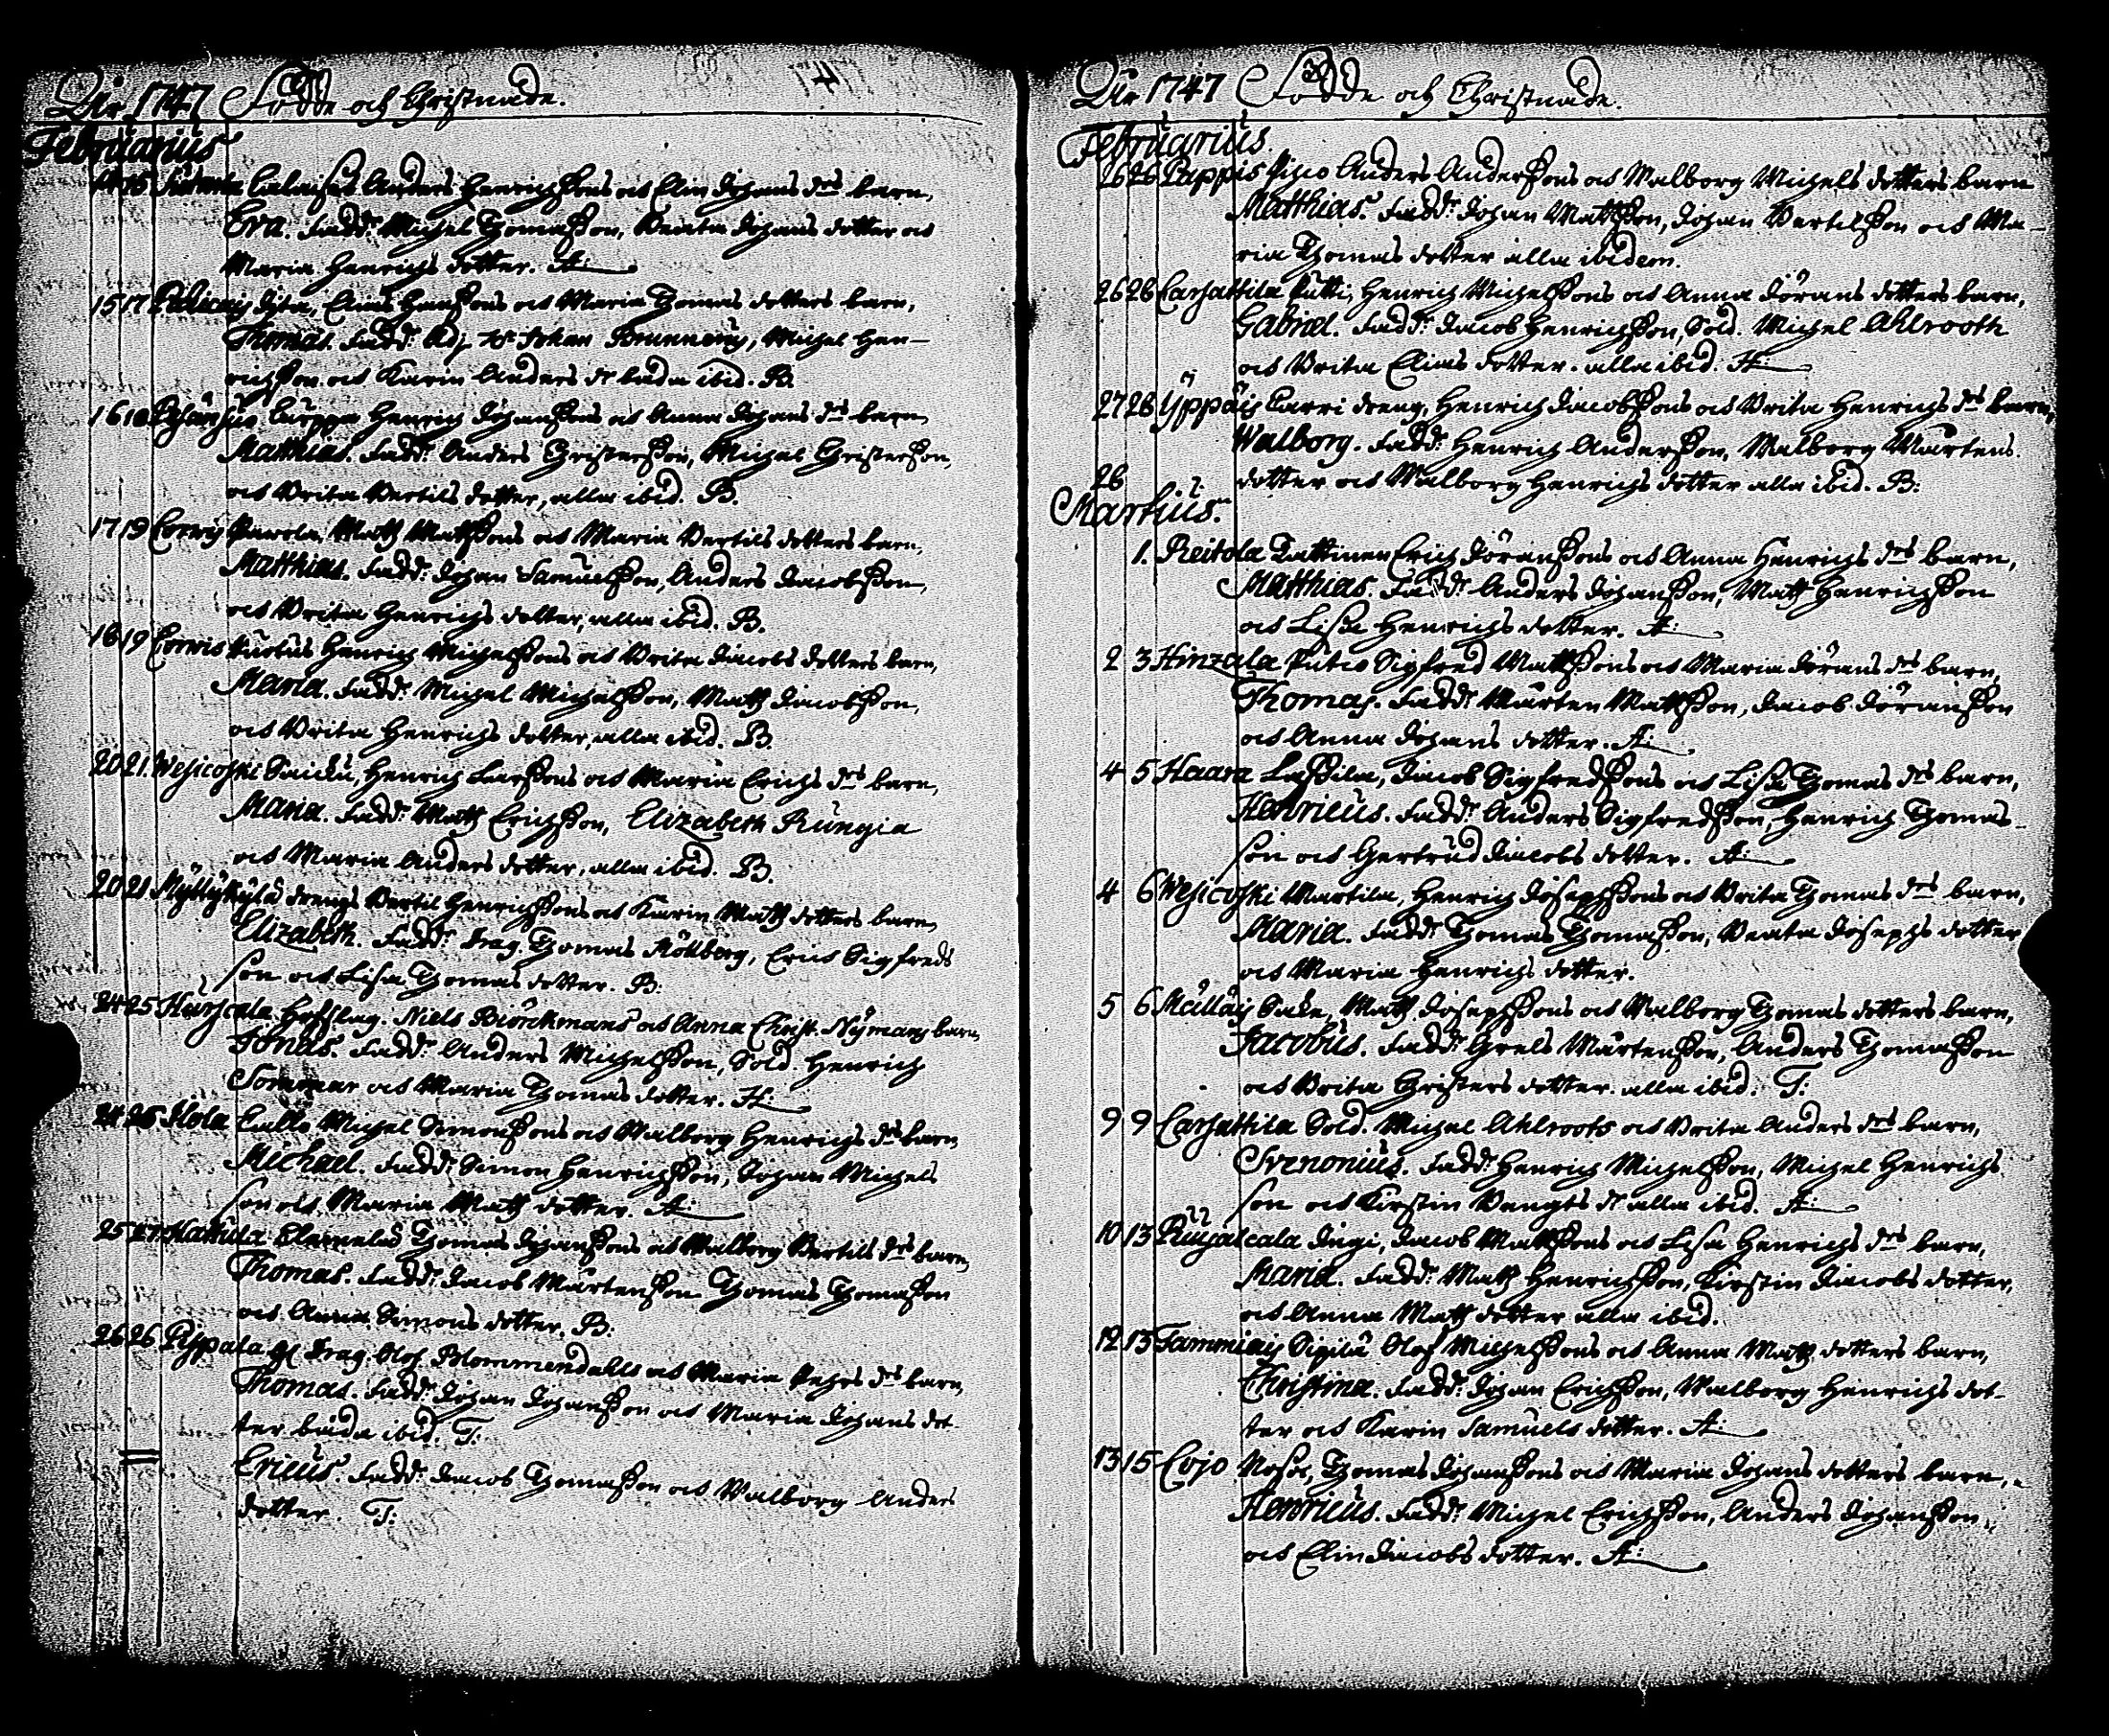 Åhr 1747 Födde och Christnade.
Februarius
15 Anders Henrichssons och Elin Johans drs barn,
Eva. Fadd: Michel Thomasson, Beata Johans dotter och
Maria Henrichs dotter. A:
15 17 Elias Hanssons och Maria Thomas dotters barn,
Thomas. Fadd: Adj. Hr Johan Brunnerus, Michel Hen-
richsson och Karin Anders dr båda ibid. B.
16 18 Henrich Johanssons och Anna Johans drs barn,
Matthias. Fadd: Anders Christersson, Michel Christersson,
och Brita Bertils dotter, alla ibid. B.
17 19 Corwis Matts Mattssons och Maria Bertils dotters barn,
Matthias. Fadd: Johan Samuelsson, Anders Jacobsson,
och Brita Henrichs dotter, alla ibid. B.
18 19 Corwis Henrich Michelssons och Brita Jacobs dotters barn,
Maria. Fadd: Michel Michelsson, Matts Jacobsson,
och Brita Henrichs dotter, alla ibid. B.
20 21 Wesicoski Henrich Larssons och Maria Erichs drs barn,
Maria. Fadd: Matts Erichsson, Elizabeth Rungia
och Maria Anders dotter, alla ibid. B.
20 21 Myllykylä drengs Bertil Henrichssons och Karin Matts dotters barn,
Elizabeth. Fadd: Drag. Thomas Erich Sigfreds
son och Lisa Thomas dotter. B.
24 25 Harjcala Niels Biörckmans och Anna Christ. Nymans barn,
Jonas. Fadd: Anders Michelsson, Sold. Henrich
Sommar och Maria Thomas dotter. H:
24 25 Ilola Michel Simonssons och Walborg Henrichs drs barn
Michael. Fadd: Simon Henrichsson, Johan Michels
son och Maria Matts dotter. A:
25 27 Hattula Thomas Johanssons och Walborg Bertils drs barn,
Thomas. Fadd: Jacob Mårtensson Thomas Thomasson
och Anna Simons dotter. B:
26 26 Pyppala Drag. Olof Blommendalls och Maria Pehrs drs barn,
Thomas. Fadd: Johan Johansson och Maria Johans dot
ter båda ibid. T:
Ericus. Fadd: Jacob Thomasson och Walborg Anders
dotter. T:
Åhr 1747 Födde och Christnade.
Februarius.
26 26 Pappis Anders Anderssons och Walborg Michels dotters barn
Matthias. Fadd: Johan Mattsson, Johan Bertilsson och Ma-
ria Thomas dotter alla ibidem.
26 28 Carhattila Putti, Henrich Michelssons och Anna Jörans dotters barn,
Gabriel. Fadd: Jacob Henrichsson, Sold. Michel Ahlrooth
och Brita Elias dotter. alla ibid. H:
27 28 Yppäis Larri dreng, Henrich Jacobssons och Brita Henrichs drs barn,
Walborg. Fadd: Henrich Andersson, Walborg Mårtens
28 dotter och Walborg Henrichs dotter alla ibid. B:
Martius.
1. Reitola Tattinen Erich Jöranssons och Anna Henrichs drs barn,
Matthias. Fadd: Anders Johansson, Matts Henrichsson
och Lisa Henrichs dotter. A:
2 3 Hinzala Sigfred Mattssons och Maria Jörans drs barn,
Thomas. Fadd: Mårten Mattsson, Jacob Jöransson
och Anna Johans dotter. A:
4 5 Haara Lassila, Jacob Sigfredssons och Lisa Thomas drs barn,
Henricus. Fadd: Anders Sigfredsson, Henrich Thomas-
son och Gertrud Jacobs dotter. A:
4 6 Wesicoski Martila, Henrich Josephssons och Brita Thomas drs barn,
Maria. Fadd: Thomas Thomasson, Beata Josephs dotter
och Maria Henrichs dotter.
5 6 Mälläis Matts Josephssons och Walborg Thomas dotters barn,
Jacobus. Fadd: Grels Mårtensson, Anders Thomasson
och Brita Christers dotter. alla ibid. T:
9 9 Carhattila Sold. Michel Ahlroots och Brita Anders drs barn,
Svenonius. Fadd: Henrich Michelsson, Michel Henrichs
son och Kirstin Bengts dr alla ibid. A:
10 13 Jacob Mattssons och Lisa Henrichs drs barn,
Maria. Fadd: Matts Henrichsson, Kirstin Jacobs dotter,
och Anna Matts dotter alla ibid.
12 13 Tammiais Olof Michelssons och Anna Matts dotters barn,
Christina. Fadd: Johan Erichsson, Walborg Henrichs dot-
ter och Karin Samuels dotter. A:
13 15 Cojo Thomas Johanssons och Maria Johans dotters barn,
Henricus. Fadd: Michel Erichsson, Anders Johansson,
och Elin Jacobs dotter. A: